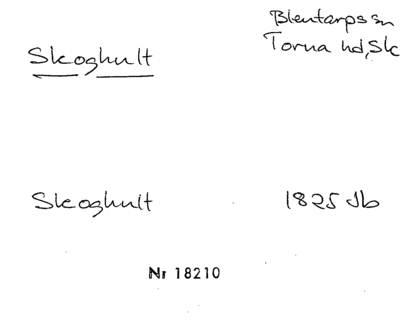 Blentarps sn
Skoghult
Torna hd, Sk
Skoghult
1825 Jb
Nr 18210